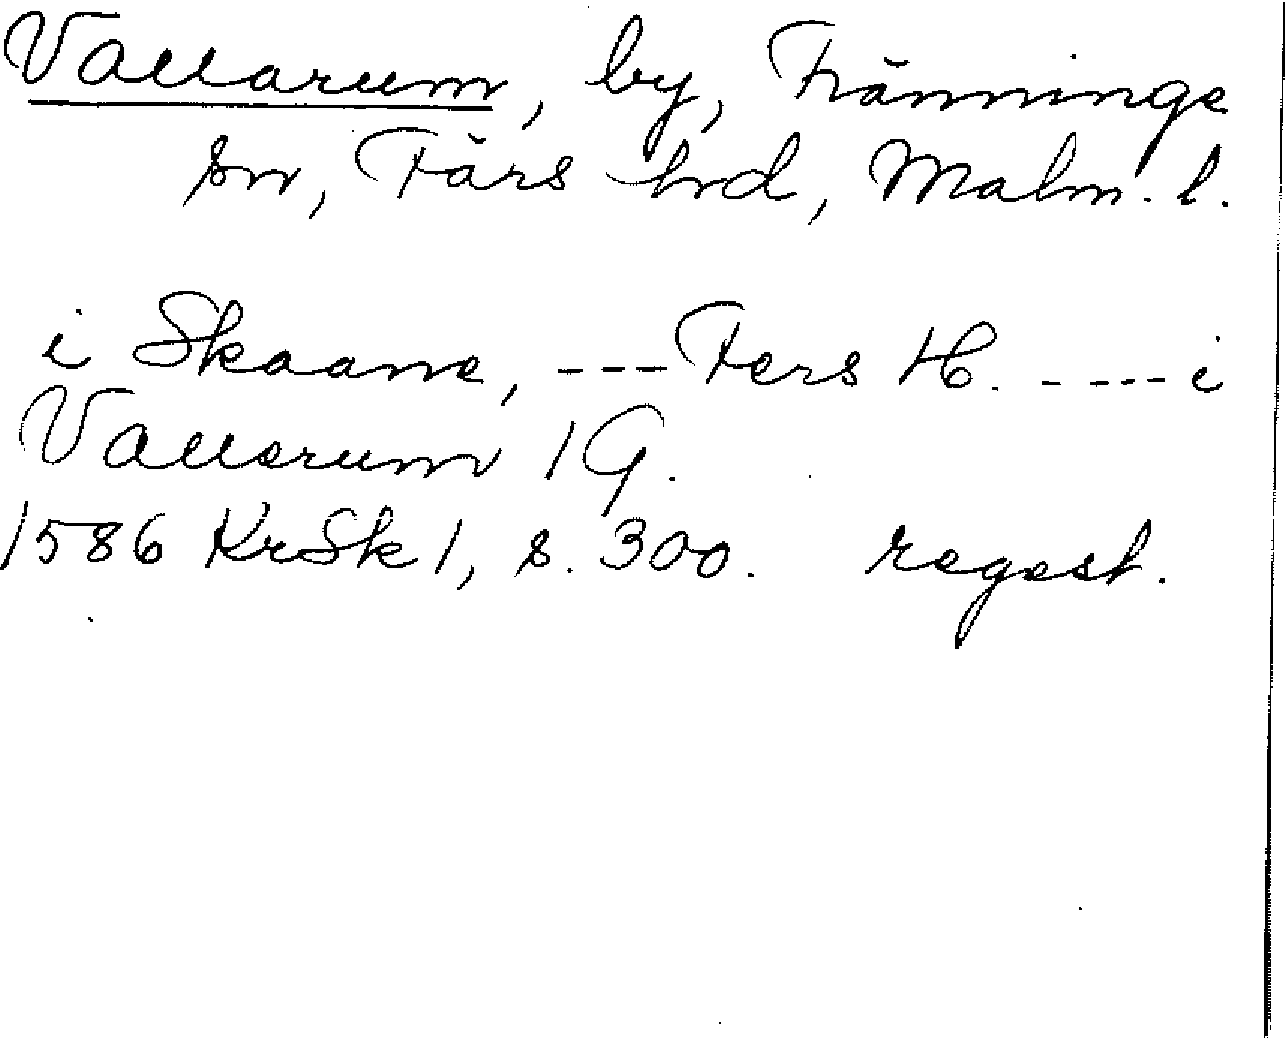 Vallarum, by, Fränninge
sn, Färs hrd, Malm. l.
i Skaane, --- Fers H. ---- i
Vallerum 1 G.
1586 KrSk 1, s. 300. regest.